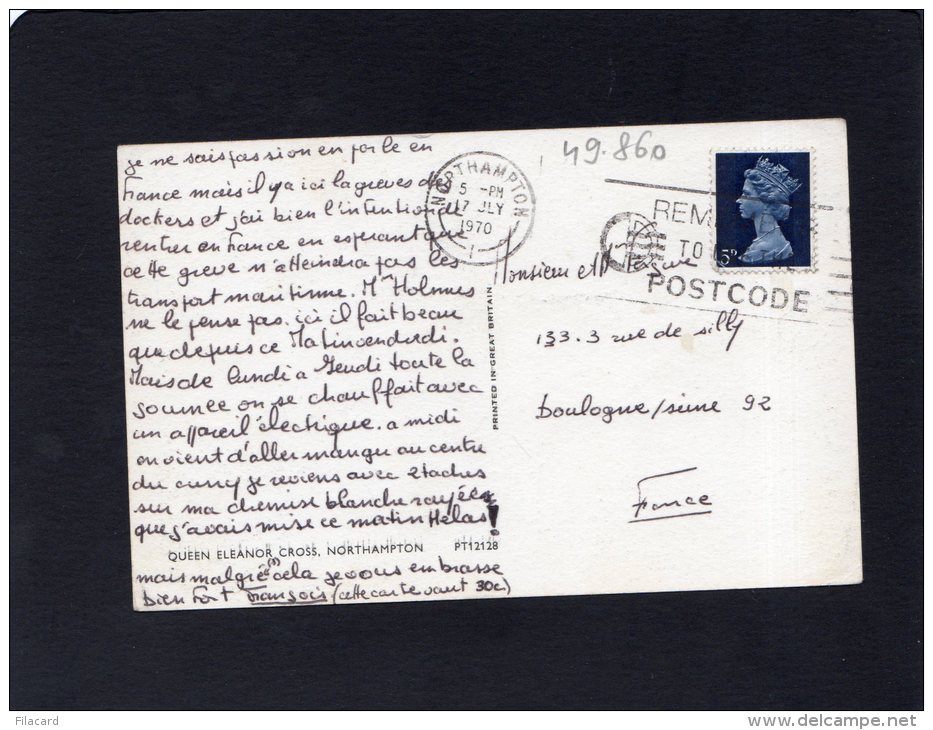 je ne sais pas si on en parle en
France mais il y a ici la greves des
dockers et j'ai bien l'intention de
rentrer en France en esperant que
cette greve n'atteindra pas les
transport maritime. Mr Holmes
ne le pense pas. ici il fait beau
que depuis ce Matin vendredi.
Mais de lundi a Jeudi toute la
journée on se chauffait avec
un appareil électrique. a midi
on vient d'aller manger au centre
du je reviens avec 2 taches
sur ma chemise blanche rayée
que j'avais mise ce matin Hélas!
QUEEN ELEANOR CROSS, NORTHAMPTON PT12128
mais malgré cela je vous embrasse
bien fort François (cette carte vaut 30c)
PRINTED IN GREAT BRITAIN
49.860
NORTHAMPTON
5 -PM
17 JLY
1970
REM
TO
POSTCODE
5D
Monsieur et
133.3 rue de silly
Boulogne/seine 92
France
Filacard
www.delcampe.net